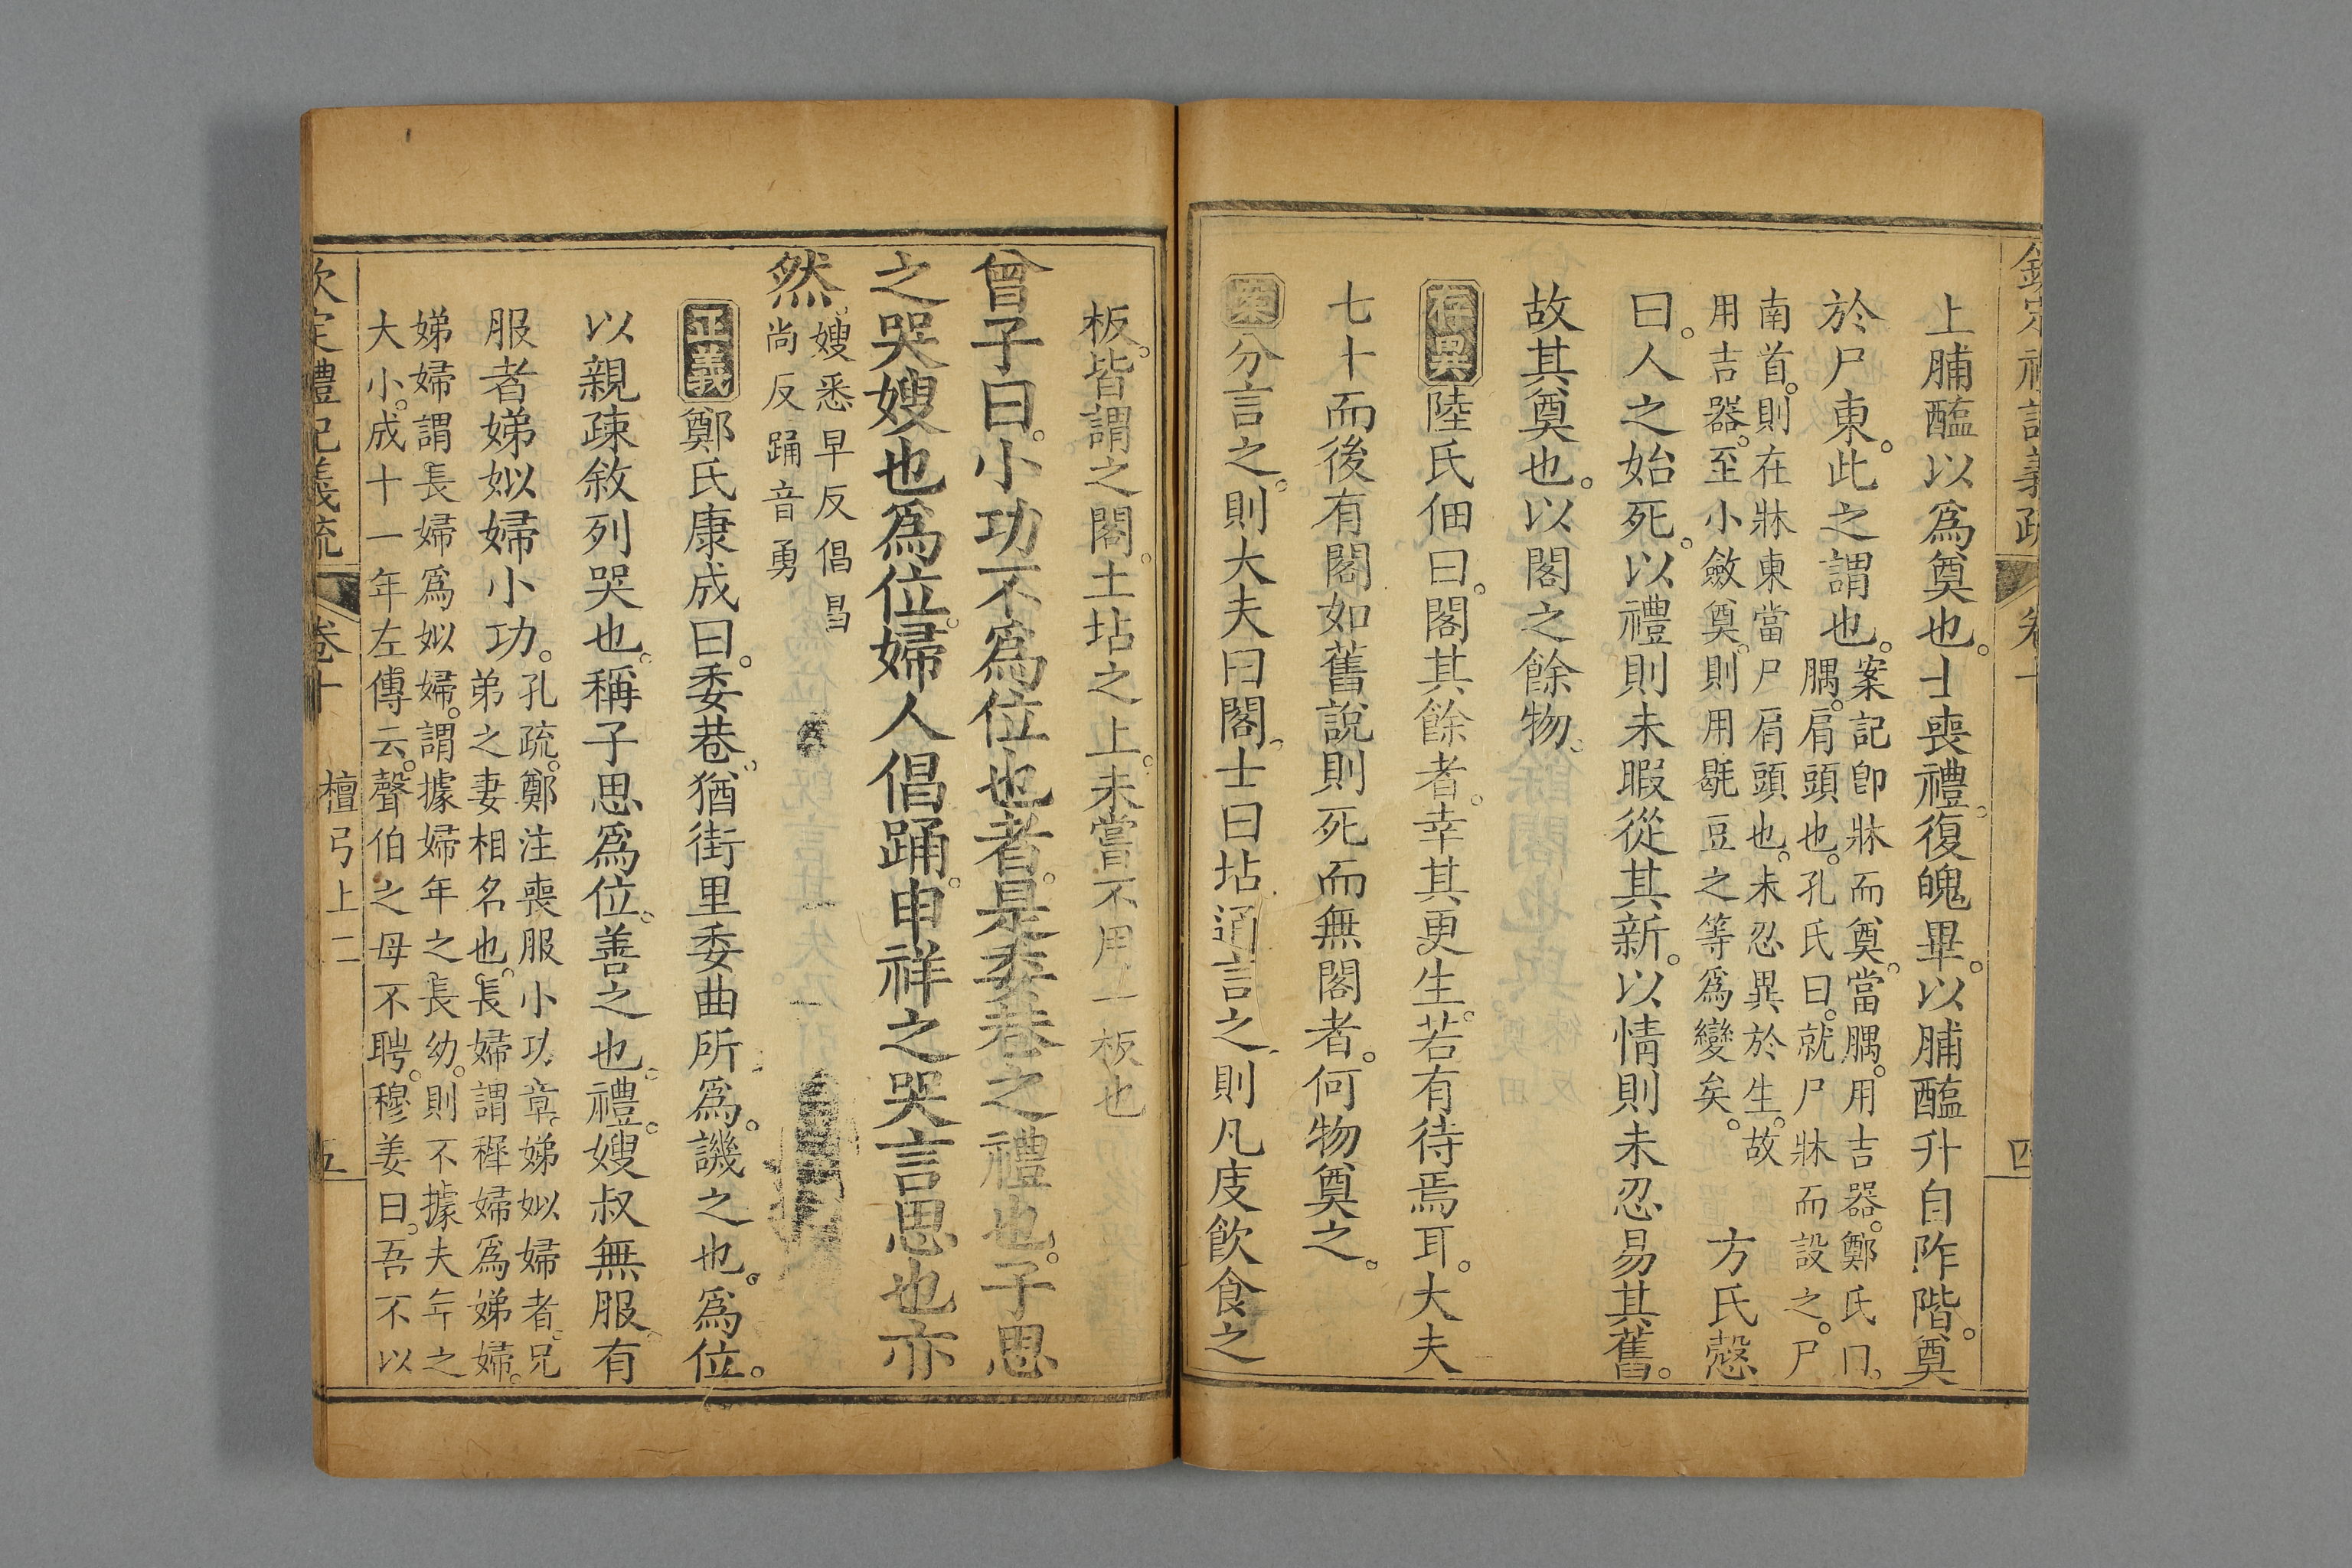 欽定禮記義疏 卷十 四
上脯醢以爲奠也。士喪禮。復魄畢。以脯醢升自阼階。奠
於尸東。此之謂也。案記卽牀而奠。當腢。用吉器。鄭氏曰。
腢。肩頭也。孔氏曰。就尸牀而設之。尸
南首。則在牀東當尸肩頭也。未忍異於生。故
用吉器。至小斂奠。則用毼豆之等爲變矣。方氏慤
曰。人之始死。以禮則未暇從其新。以情則未忍易其舊。
故其奠也。以閣之餘物。
存異陸氏佃曰。閣其餘者。幸其更生。若有待焉耳。大夫
七十而後有閣如舊說則死而無閣者。何物奠之。
案分言之。則大夫曰閣。士曰坫通言之。則凡庋飲食之
板。皆謂之閣。土坫之上。未嘗不用一板也
曾子曰。小功不爲位也者。是委巷之禮也。子思
之哭嫂也爲位。婦人倡踊。申祥之哭言思也亦
然。嫂悉早反倡昌
尚反踊音勇
正義鄭氏康成曰。委巷。猶街里委曲所爲。譏之也。爲位。
以親疎敘列哭也。稱子思爲位。善之也。禮。嫂叔無服。有
服者娣姒婦小功。孔疏。鄭注喪服小功章。娣姒婦者。兄
弟之妻相名也。長婦謂穉婦爲娣婦。
娣婦謂長婦爲姒婦。謂據婦年之長幼。則不據夫年之
大小。成十一年左傳云。聲伯之母不聘。穆姜曰。吾不以
欽定禮記義疏 卷十 檀弓上二 五